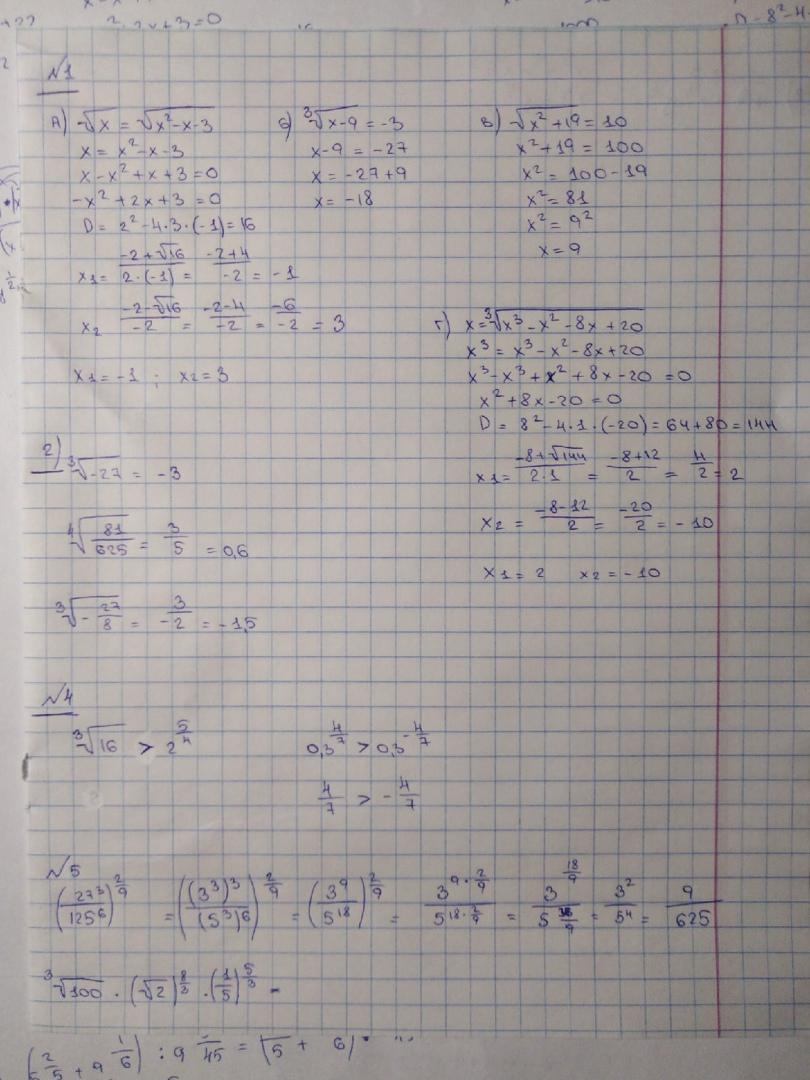 2x+3=0
D=8²-4
№1
А) √x = √(x²-x-3)
x = x²-x-3
x-x²+x+3=0
-x²+2x+3=0
D=2²-4·3·(-1)=16
x₁= (-2+√16)/(2·(-1)) = (-2+4)/(-2) = -1
x₂ (-2-√16)/(-2) = (-2-4)/(-2) = (-6)/(-2) = 3
x₁=-1 ; x₂=3
б) ∛(x-9) = -3
x-9 = -27
x = -27+9
x = -18
в) √(x²+19) = 10
x²+19 = 100
x² = 100-19
x²=81
x²=9²
x=9
г) x=∛(x³-x²-8x+20)
x³ = x³-x²-8x+20
x³-x³+x²+8x-20 =0
x²+8x-20=0
D = 8²-4·1·(-20)=64+80=144
x₁= (-8+√144)/(2·1) = (-8+12)/2 = 4/2 = 2
x₂ = (-8-12)/2 = (-20)/2 = -10
x₁=2 x₂=-10
2)
∛(-27) = -3
∜(81/625) = 3/5 = 0,6
∛(-27/8) = 3/(-2) = -1,5
№4
∛16 > 2^(5/4)
0,3^(4/7) > 0,3^(-4/7)
4/7 > -4/7
№5
(27³/125⁶)^(2/9) = ((3³)³/(5³)⁶)^(2/9) = (3⁹/5¹⁸)^(2/9) = 3^(9·2/9)/5^(18·2/9) = 3^(18/9)/5^(36/9) = 3²/5⁴ = 9/625
∛100 · (√2)^(8/3) · (1/5)^(5/3) =